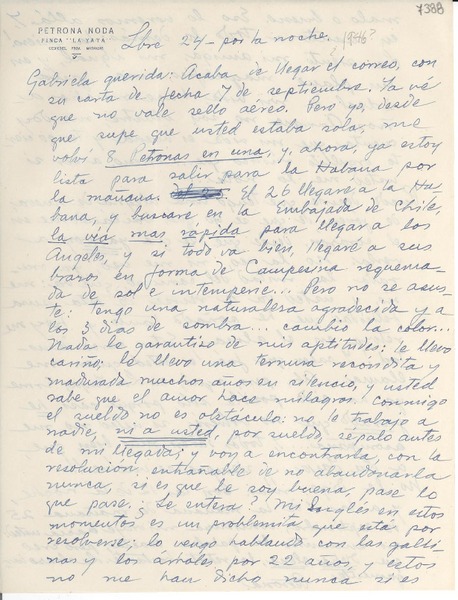 7388
PETRONA NODA
FINCA "LA YAYA"
Sbre 24 - por la noche. (1946?
Gabriela querida: Acaba de llegar el correo, con
su carta de fecha 7 de septiembre. Ya vé
que no vale sello aéreo. Pero yo, desde
que supe que usted estaba sola, me
volví 8 Petronas en una, y, ahora, ya estoy
lista para salir para la Habana por
la mañana. El 26 llegaré a la Ha-
bana, y buscaré en la Embajada de Chile,
la vía mas rápida para llegar a los
Angeles, y si todo va bien, llegaré a sus
brazos en forma de Campesina requema-
da de sol e intemperie... Pero no se asus-
te: tengo una naturaleza agradecida y a
los 3 días de sombra... cambio la color...
Nada le garantiso de mis aptitudes: le llevo
cariño; le llevo una ternura recondita y
madurada muchos años en silencio, y usted
sabe que el amor hace milagros! Conmigo
el sueldo no es obstáculo: no le trabajo a
nadie, ni a usted, por sueldo, sépalo antes
de mi llegada; y voy a encontrarla, con la
resolucion, entrañable de no abandonarla
nunca, si es que le soy buena, pase lo
que pase. ¿Se entera? Mi Inglés en estos
momentos es un problemita que está por
resolverse; lo vengo hablando con las galli-
nas y los árboles por 22 años, y estos
no me han dicho nunca si es